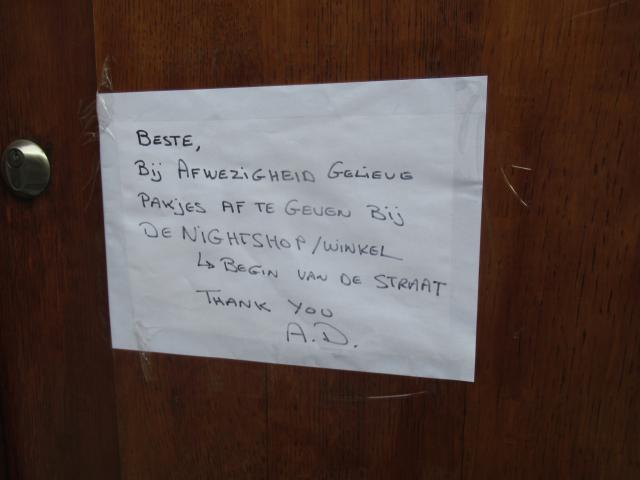 BESTE,
Bij AFWEZIGHEID GELIEVE
PAKJES AF TE GEVEN Bij
DE NIGHTSHOP/WINKEL
↳ BEGIN VAN DE STRAAT
THANK YOU
A.D.